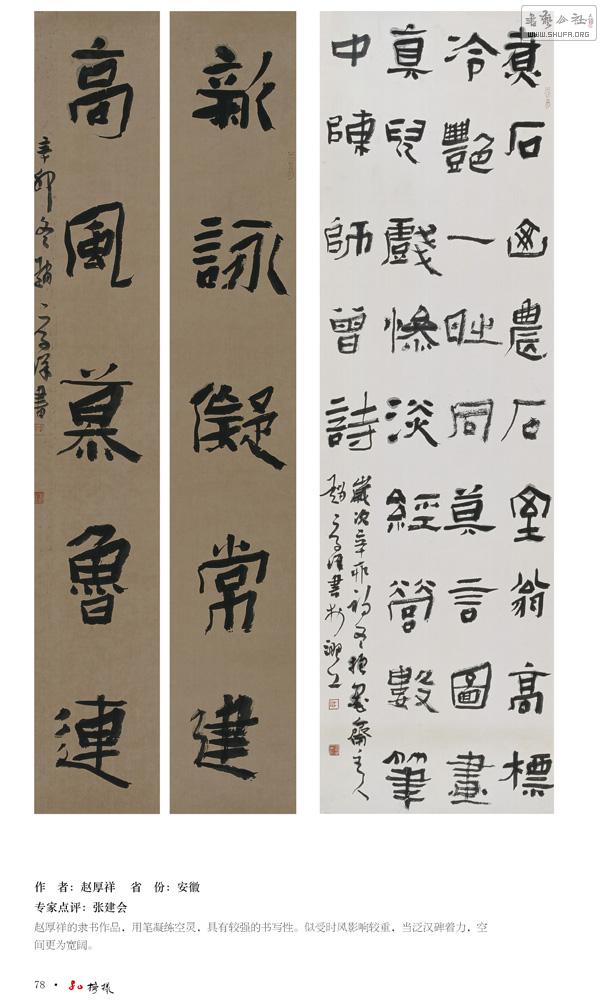 书艺公社
WWW.SHUFA.ORG
煮石幽農石室翁高標
冷艷一時同莫言圖畫
真兒戲慘淡經營數筆
中陳師曾詩
歲次辛卯初冬齋主人
趙厚祥書於
新詠儗常建
高風慕魯連
辛卯冬趙厚祥書
作 者：赵厚祥 省 份：安徽
专家点评：张建会
赵厚祥的隶书作品，用笔凝练空灵，具有较强的书写性。似受时风影响较重，当泛汉碑着力，空
间更为宽阔。
78 ·